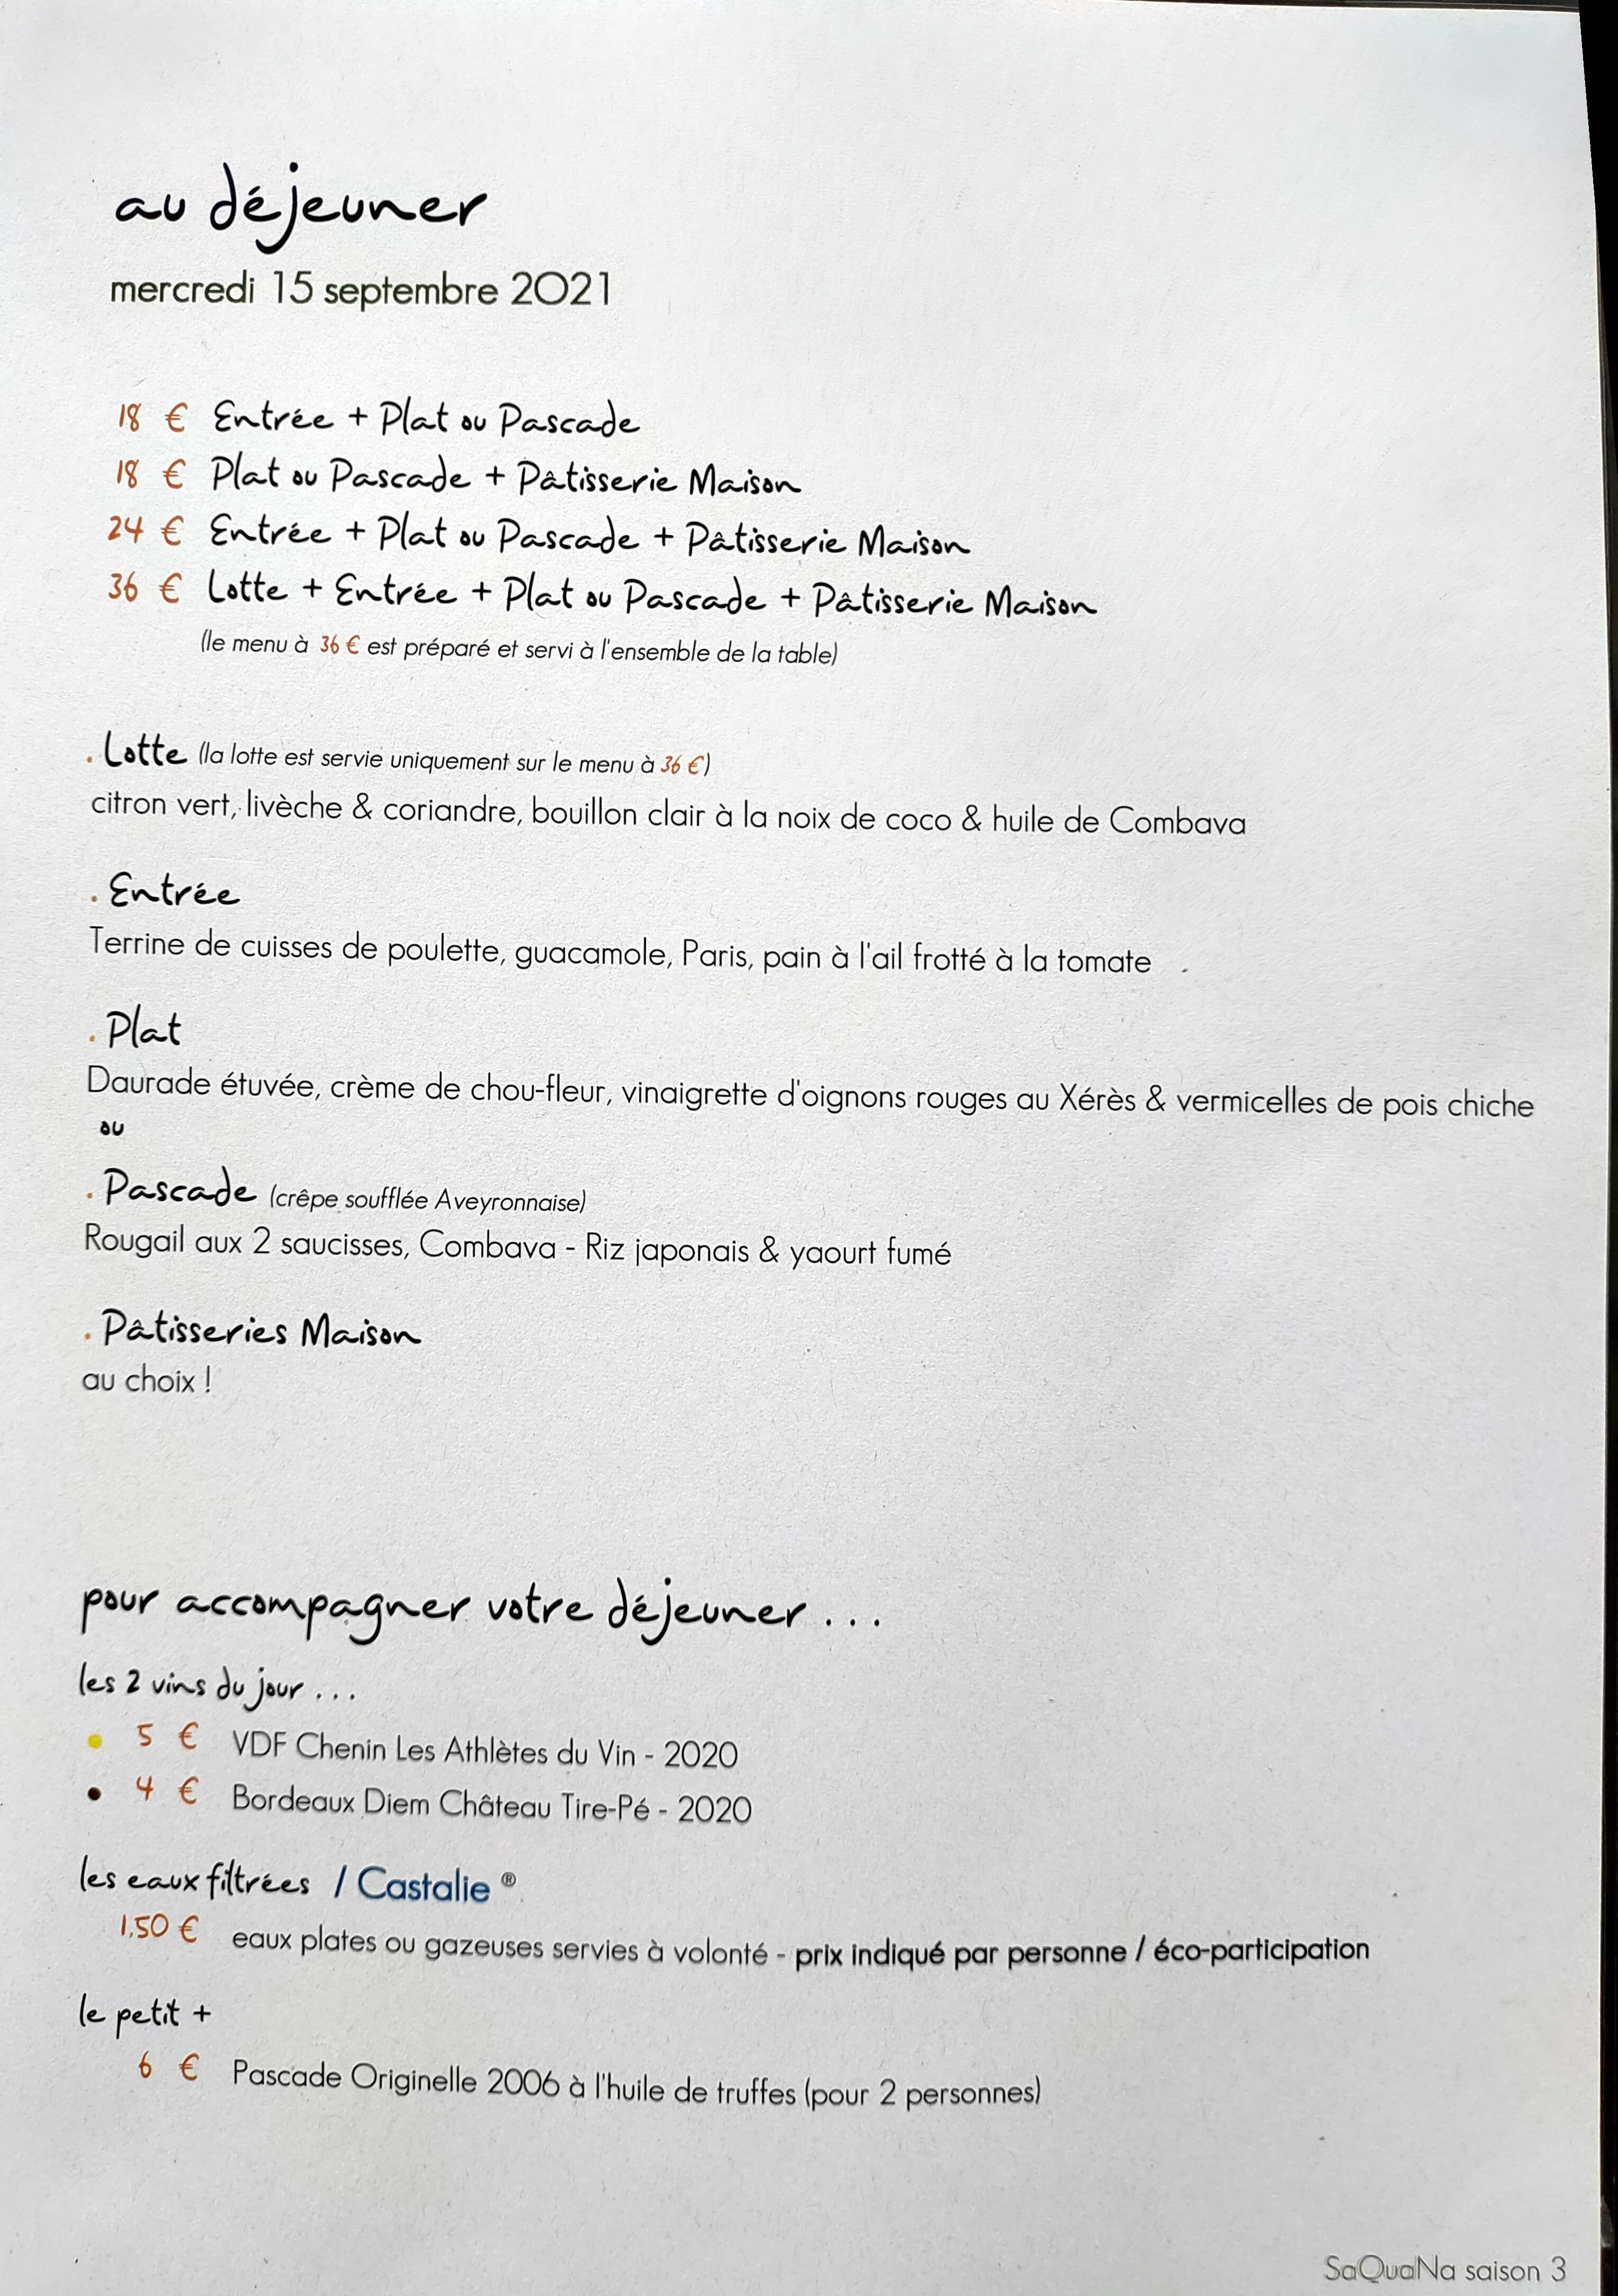 au déjeuner
mercredi 15 septembre 2021
18 € Entrée + Plat ou Pascade
18 € Plat ou Pascade + Pâtisserie Maison
24 € Entrée + Plat ou Pascade + Pâtisserie Maison
36 € Lotte + Entrée + Plat ou Pascade + Pâtisserie Maison
(le menu à 36 € est préparé et servi à l'ensemble de la table)
. Lotte (la lotte est servie uniquement sur le menu à 36 €)
citron vert, livèche & coriandre, bouillon clair à la noix de coco & huile de Combava
. Entrée
Terrine de cuisses de poulette, guacamole, Paris, pain à l'ail frotté à la tomate
. Plat
Daurade étuvée, crème de chou-fleur, vinaigrette d'oignons rouges au Xérès & vermicelles de pois chiche
ou
. Pascade (crêpe soufflée Aveyronnaise)
Rougail aux 2 saucisses, Combava - Riz japonais & yaourt fumé
. Pâtisseries Maison
au choix !
pour accompagner votre déjeuner ...
les 2 vins du jour ...
5 € VDF Chenin Les Athlètes du Vin - 2020
4 € Bordeaux Diem Château Tire-Pé - 2020
les eaux filtrées / Castalie ®
1,50 € eaux plates ou gazeuses servies à volonté - prix indiqué par personne / éco-participation
le petit +
6 € Pascade Originelle 2006 à l'huile de truffes (pour 2 personnes)
SaQuaNa saison 3